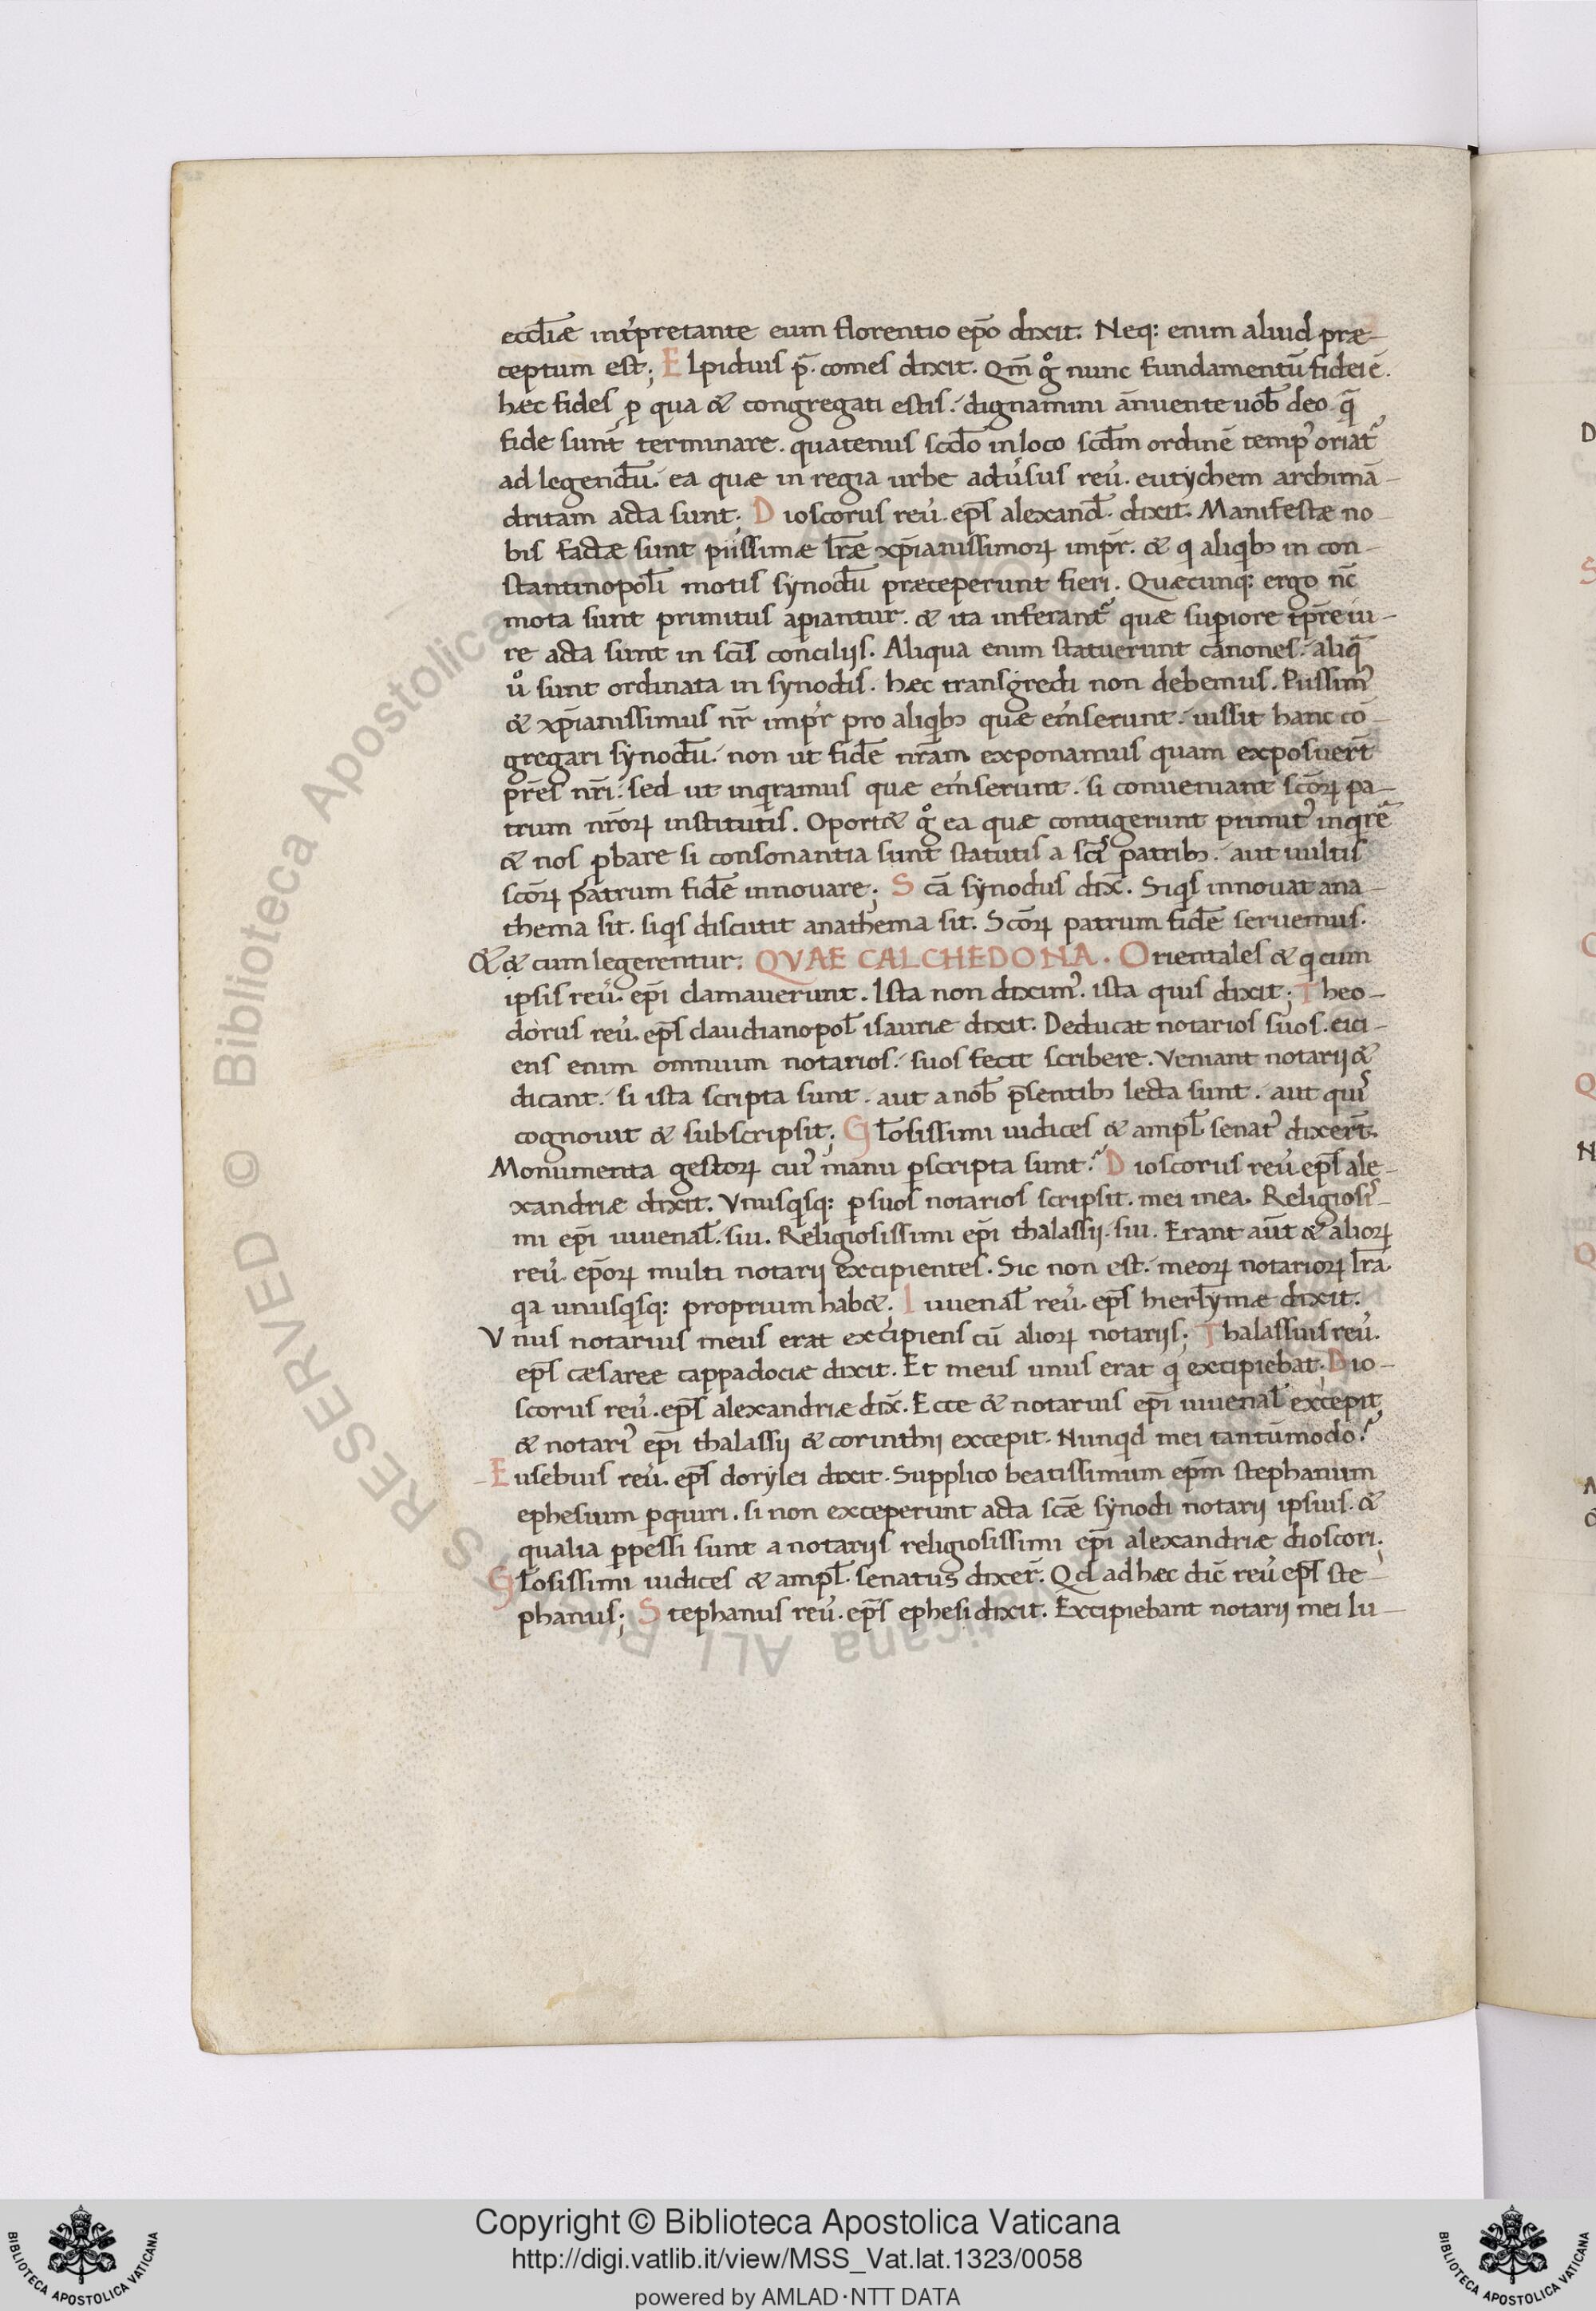 eccl̄iæ int̉pretante eum florentio ep̄o dixit. Neq: enim aliud præ-
ceptum est; Elpidius p̄. comes dixit. Qm̄ g̊ nunc fundamentū fidei ē.
hæc fides ꝑ qua & congregati estis. dignamini annuente uob̄ deo q̄
fide sunt terminare. quatenus scd̄o in loco scd̄m ordinē temp᾽ oriat᾽
ad legendū. ea quæ in regia urbe adu᾽sus reu᾽. eutychem archimā-
dritam acta sunt; Dioscorus reu᾽. ep̄s alexand̄. dixit. Manifestæ no-
bis factæ sunt piissimæ lr̄æ xp̄ianissimoꝝ imp̄r. & q aliqb; in con-
stantinopol̄i motis synodū præceperunt fieri. Quæcunq: ergo nc̄
mota sunt primitus apiantur. & ita inferant᾽ quæ supiore tp̄re iu-
re acta sunt in sc̄is conciliis. Aliqua enim statuerunt canones. aliq̄
ů sunt ordinata in synodis. hæc transgredi non debemus. Piissim᾽
& xp̄ianissimus nr̄ imp̄r pro aliqb; quæ em̉serunt. iussit hanc cō-
gregari synodū. non ut fidē nr̄am exponamus quam exposuer̄t
pr̄es nr̄i. sed ut inqramus quæ em̉serunt. si conueniant sc̄oꝝ pa-
trum nr̄oꝝ institutis. Oport& g̊ ea quæ contigerunt primit᾽ inqrē
& nos ꝓbare si consonantia sunt statutis a sc̄is patrib;. aut uultis
sc̄oꝝ patrum fidē innouare; Sc̄a synodus dix̄. Siqs innouat ana-
thema sit. siqs discutit anathema sit. Sc̄oꝝ patrum fidē seruemus.
& & cum legerentur. QVAE CALCHEDONA. Orientales & q cum
ipsis reu᾽. ep̄i clamauerunt. Ista non dixim᾽. ista quis dixit; Theo-
dorus reu᾽. ep̄s claudianopol̄ isauriæ dixit. Deducat notarios suos. eici-
ens enim omnium notarios. suos fecit scribere. Veniant notarij &
dicant. si ista scripta sunt. aut a nob̄ p̄sentib; lecta sunt. aut quis
cognouit & subscripsit; Gl̄osissimi iudices & ampl̄ senat᾽ dixer̄t.
Monumenta gestoꝝ cui᾽ manu ꝑscripta sunt? Dioscorus reu᾽ ep̄s ale-
xandriæ dixit. Vnusqsq: ꝑ suos notarios scripsit. mei mea. Religiosi-
mi ep̄i iuuenal̄. sui. Religiosissimi ep̄i thalassij. sui. Erant aūt & alioꝝ
reu᾽. ep̄oꝝ multi notarij excipientes. Sic non est. meoꝝ notarioꝝ lr̄a.
qa unusqsq: proprium hab&. Iuuenal̄ reu᾽. ep̄s hierl̄ymæ dixit.
Vnus notarius meus erat excipiens cū alioꝝ notarijs; Thalassius reu᾽.
ep̄s cæsareæ cappadociæ dixit. Et meus unus erat q excipiebat; Dio-
scorus reu᾽. ep̄s alexandriæ dix̄. Ecce & notarius ep̄i iuuenal̄ excepit
& notari᾽ ep̄i thalassij & corinthij excepit. Nunqd mei tantūmodo?
Eusebius reu᾽. ep̄s dorylei dixit. Supplico beatissimum ep̄m stephanum
ephesium ꝑquiri. si non exceperunt acta sc̄æ synodi notarij ipsius. &
qualia ꝑpessi sunt a notarijs religiosissimi ep̄i alexandriæ dioscori;
Gl̄osissimi iudices & ampl̄. senatus dixer̄. Qd ad hæc dic̄ reu᾽ ep̄s ste-
phanus; Stephanus reu᾽. ep̄s ephesi dixit. Excipiebant notarij mei Iu-
Copyright © Biblioteca Apostolica Vaticana
http://digi.vatlib.it/view/MSS_Vat.lat.1323/0058
powered by AMLAD·NTT DATA